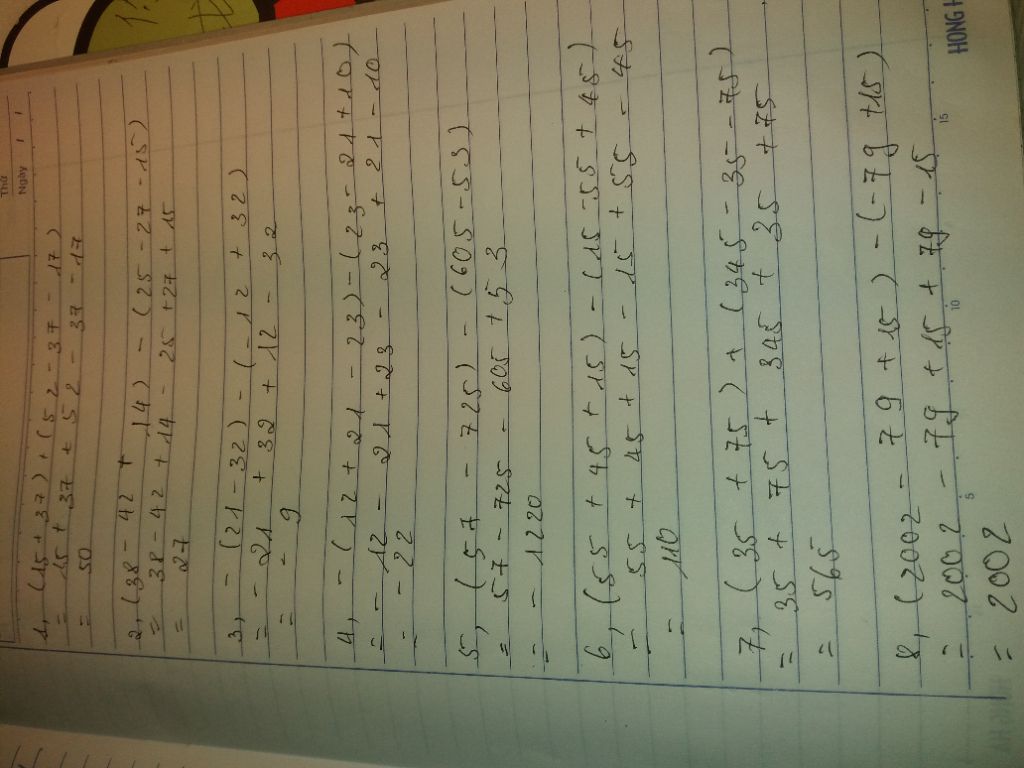 Thứ
Ngày
1, (15 + 37) + (52 - 37 - 17)
= 15 + 37 + 52 - 37 - 17
= 50
2, (38 - 42 + 14) - (25 - 27 - 15)
= 38 - 42 + 14 - 25 + 27 + 15
= 27
3, - (21 - 32) - (- 12 + 32)
= - 21 + 32 + 12 - 32
= - 9
4, - (12 + 21 - 23) - (23 - 21 + 10)
= - 12 - 21 + 23 - 23 + 21 - 10
= - 22
5, (57 - 725) - (605 - 53)
= 57 - 725 - 605 + 53
= - 1220
6, (55 + 45 + 15) - (15 - 55 + 45)
= 55 + 45 + 15 - 15 + 55 - 45
= 110
7, (35 + 75) + (345 - 35 - 75)
= 35 + 75 + 345 + 35 + 75
= 565
8, (2002 - 79 + 15) - (-79 + 15)
= 2002 - 79 + 15 + 79 - 15
= 2002
5 10 15
HONG H